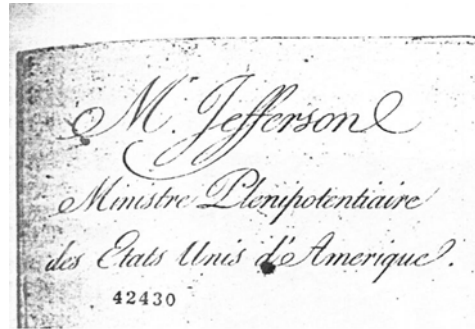 Mr. Jefferson
Ministre Plenipotentiaire
des Etats Unis d'Amerique.
42430